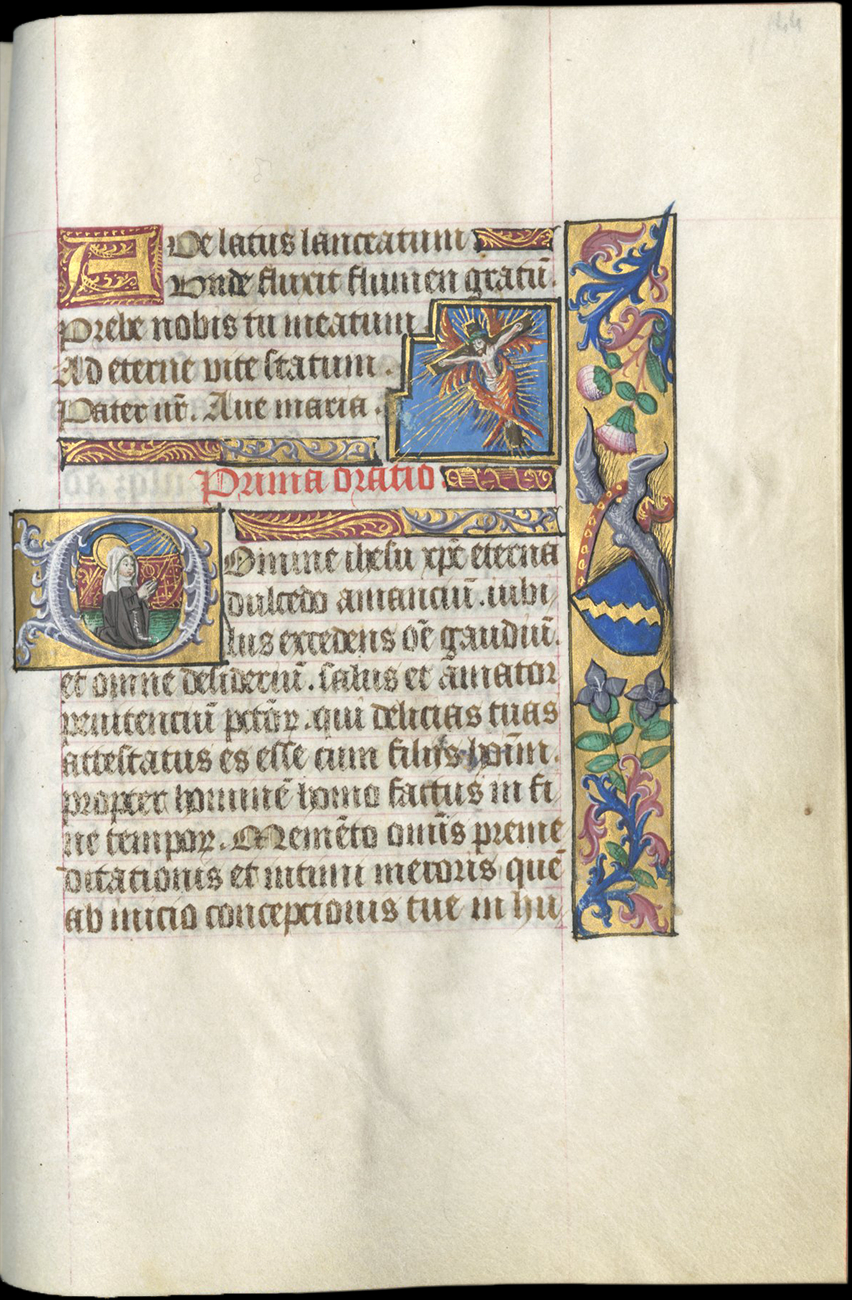 Aue latus lanceatum
Unde fluxit flumen gratū.
Prebe nobis tu meatum
Ad eterne vite statum.
Pater nr̄. Aue maria.
Prima oratio
Domine ihesu xp̄e eterna
dulcedo amanciū. iubi
lus excedens oē gaudiū.
et omne desideriū. salus et amator
penitenciū pctōꝝ. qui delicias tuas
attestatus es esse cum filijs hoīm.
propter hominē homo factus in fi
ne tempoꝝ. Memēto omīs preme
ditationis et intimi meroris quē
ab inicio conceptionis tue in hu